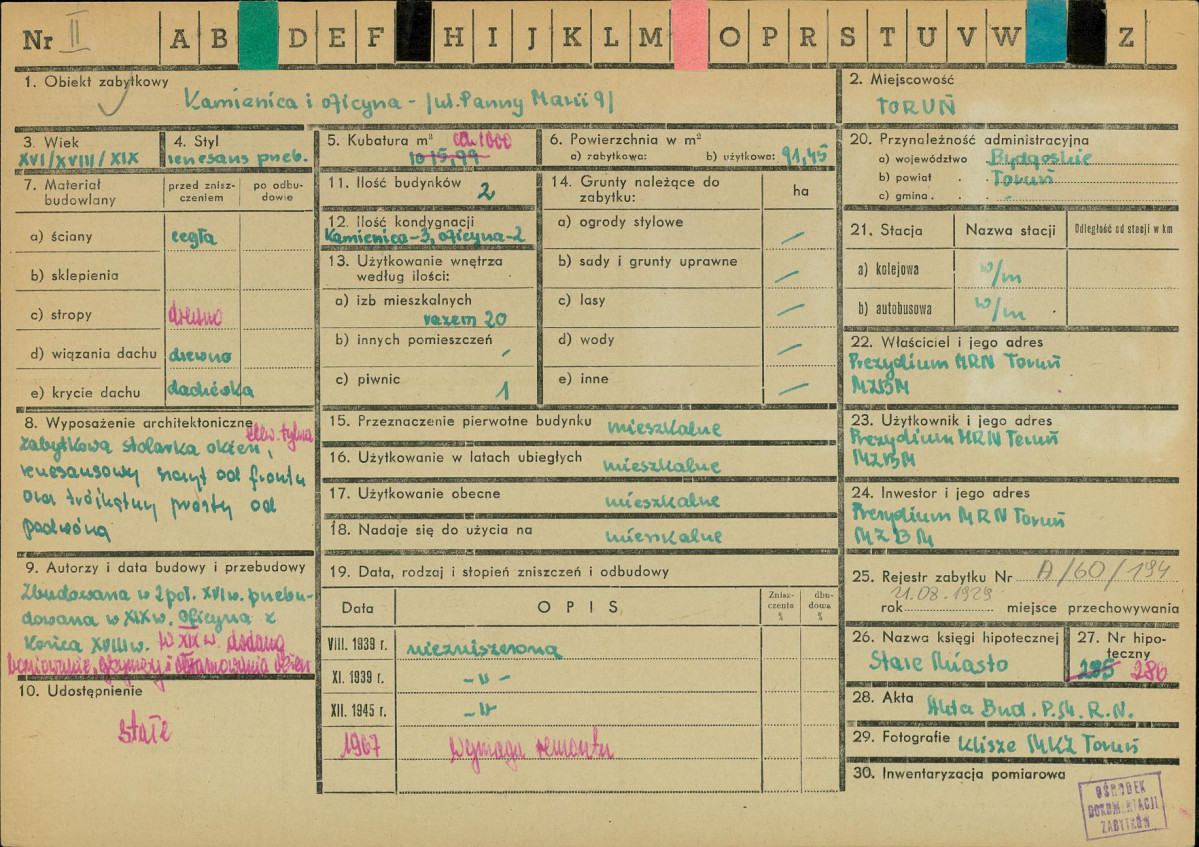 Nr II A B D E F H I J K L M O P R S T U V W Z
1. Obiekt zabytkowy
Kamienica i oficyna - /ul. Panny Marii 9/
2. Miejscowość
TORUŃ
3. Wiek
XVI/XVIII/XIX
4. Styl
renesans przeb.
5. Kubatura m³ ca. 1000
1015,99
6. Powierzchnia w m²
a) zabytkowa: b) użytkowa: 91,45
7. Materiał budowlany
przed znisz-
czeniem
po odbu-
dowie
a) ściany cegła
b) sklepienia
c) stropy drewno
d) wiązania dachu drewno
e) krycie dachu dachówka
8. Wyposażenie architektoniczne
elew. tylna
zabytkowa stolarka okien,
renesansowy szczyt od frontu
oraz trójkątny prosty od
podwórza
9. Autorzy i data budowy i przebudowy
Zbudowana w 2 poł. XVI w. przebu-
dowana w XIX w. Oficyna z
końca XVIII w. W XIX w. dodano
boniowanie, gzymsy i obramowania okien
10. Udostępnienie
stałe
11. Ilość budynków 2
12. Ilość kondygnacji
Kamienica-3, oficyna-2
13. Użytkowanie wnętrza
według ilości:
a) izb mieszkalnych
razem 20
b) innych pomieszczeń -
c) piwnic 1
14. Grunty należące do
zabytku:
ha
a) ogrody stylowe -
b) sady i grunty uprawne -
c) lasy -
d) wody -
e) inne -
15. Przeznaczenie pierwotne budynku mieszkalne
16. Użytkowanie w latach ubiegłych mieszkalne
17. Użytkowanie obecne mieszkalne
18. Nadaje się do użycia na mieszkalne
19. Data, rodzaj i stopień zniszczeń i odbudowy
Data OPIS
Znisz-
czenia
%
dbu-
dowa
%
VIII. 1939 r. niezniszczona
XI. 1939 r. -"-
XII. 1945 r. -"-
1967 Wymaga remontu
20. Przynależność administracyjna
a) województwo Bydgoskie
b) powiat . . Toruń
c) gmina . . . -
21. Stacja Nazwa stacji Odległość od stacji w km
a) kolejowa w/m
b) autobusowa w/m
22. Właściciel i jego adres
Prezydium MRN Toruń
MZBM
23. Użytkownik i jego adres
Prezydium MRN Toruń
MZBM
24. Inwestor i jego adres
Prezydium MRN Toruń
MZBM
25. Rejestr zabytku Nr A/60/194
21.08.1929
rok miejsce przechowywania
26. Nazwa księgi hipotecznej
Stare Miasto
27. Nr hipo-
teczny
285 286
28. Akta Akta Bud. P.M.R.N.
29. Fotografie Klisze MKZ Toruń
30. Inwentaryzacja pomiarowa
OŚRODEK
DOKUMENTACJI
ZABYTKÓW